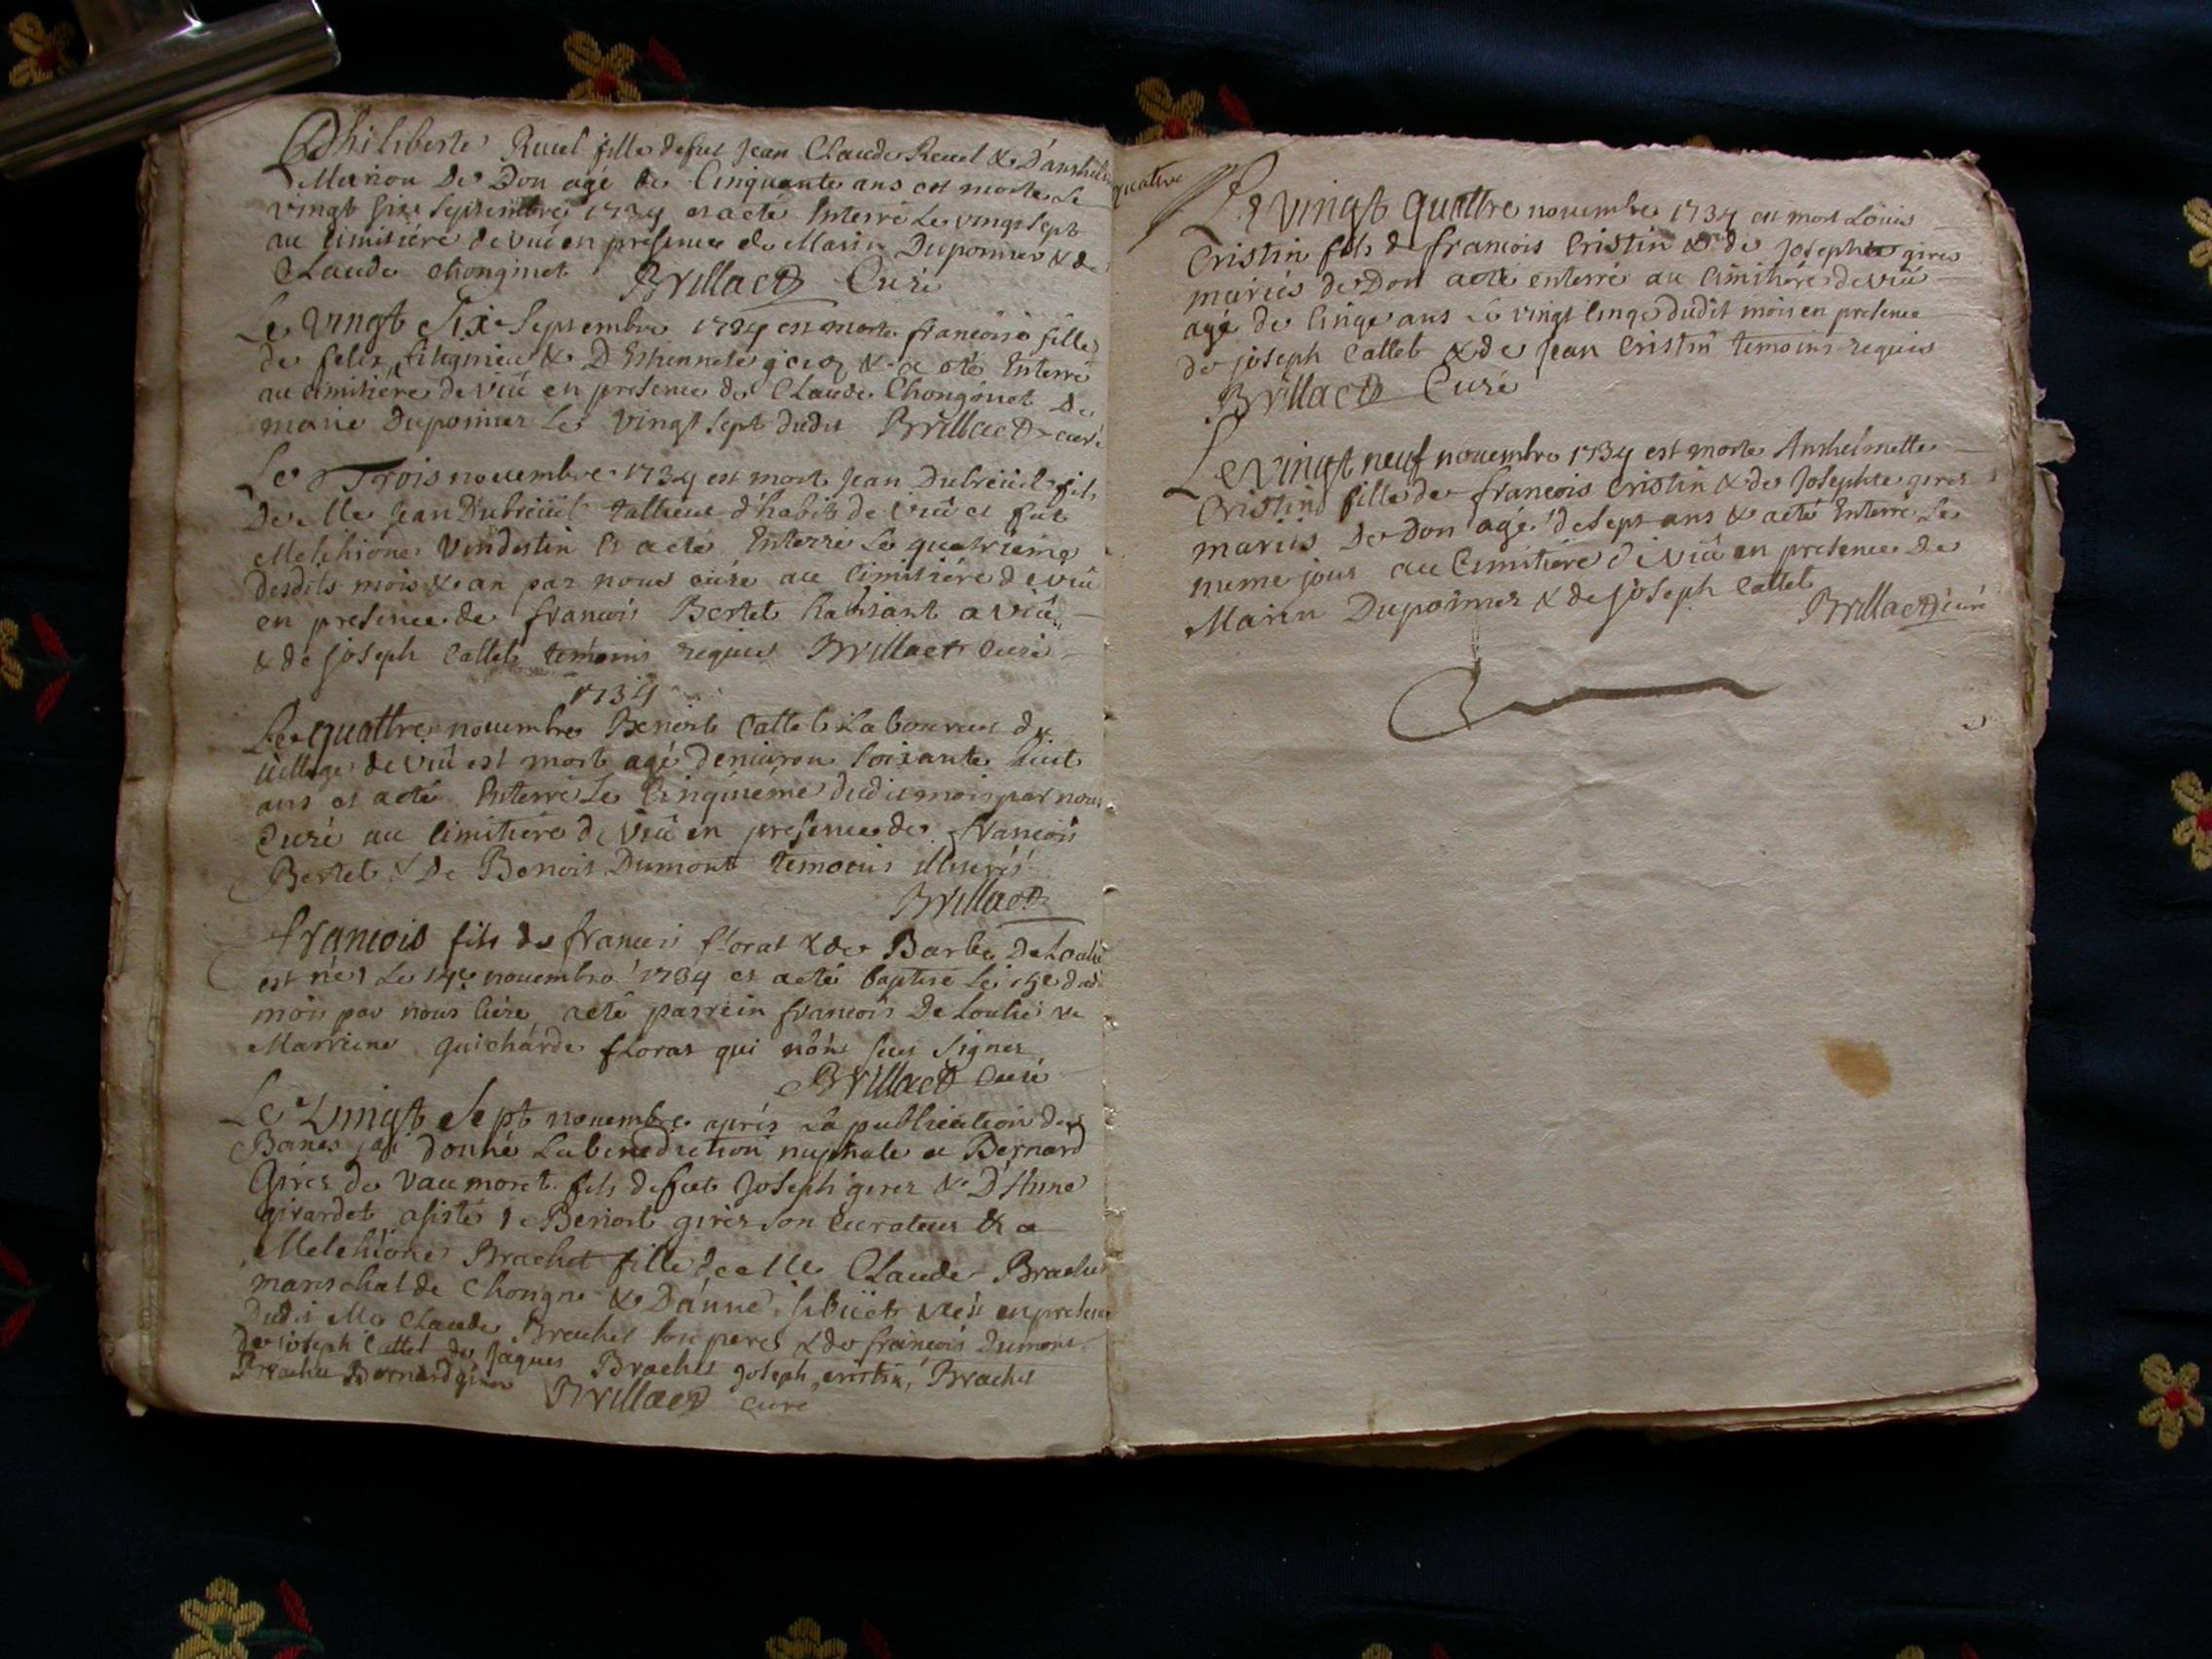 Philiberte Ruuel fille defut Jean Claude Reuel & D'anthel
Marion De Don agé de Cinquante ans est morte Le
vingt six Septembre 1734 et a eté Enterré Le vingt sept
au cimitiére de viû en presence de Marin Dupomier & de
Claude chonginet Brillact Curé
Le vingt Six Septembre 1734 est morte francoise fille
de felix & D Esthiennete & a eté Enterré
au cimitiére de viû en presence de Claude Chonginet De
marie Dupomier Le vingt sept dudit Brillact curé
Le Trois nouembre 1734 est mort Jean Dubreüil fils
De Me Jean Dubreüil talheur d'habits de viû et fut
Melchione Vindestin Et a eté Enterre Le quatrieme
desdits mois & an par nous curé au Cimitiére de viû
en presence de francois Bertet habitant a viû
& de joseph Cattet temoins requis Brillact Curé
1734
Le quattre nouembre Benoit Cattet Laboureur du
uillage de viû est mort agé denuiron soixante huit
ans et a eté Enterré Le Cinquiéme dudit mois par nous
Curé au Cimitiére de viû en presence de francois
Bertet & De Benoit Dumont temoins illiterés
Brillact
francois fils de francois florat & de Barbe De Loulie
est né Le 14e nouembre 1734 et a eté baptisé Le 15e dud
mois par nous Cure a eté parrein francois De Loulie &
Marreine Guicharde floras qui nônt sceu signer
Brillact Curé
Le Vingt Sept nouembre aprés La publication des
Banes jai donné La benediction nuptiale a Bernard
Girer de Vaumoret fils defut Joseph girer & D'Anne
girardet asisté de Benoit girer son Curateur & a
Melchione Brachet fille de Me Claude Brachet
mareschal de Chongne & Danne en presence
Dudit Me Claude Brachet son pere & de francois Dumont
De joseph Cattet de Jaques Brachet Joseph cristin, Brachet
Brachet Bernard girer Brillact curé
quatre
Le vingt quattre nouembre 1734 est mort Louis
Cristin fils de francois Cristin & de Josephte girer
mariés de Don a eté enterré au Cimitiére de viû
agé de Cinqe ans Le vingt Cinqe dudit mois en presence
de joseph Cattet & de Jean Cristin temoins requis
Brillact Curé
Le vingt neuf nouembre 1734 est morte Anthelmette
Cristin fille de francois Cristin & de Josephte girer
mariés De Don agé de sept ans & a eté Enterré Le
meme jour au Cimitiére de viû en presence De
Marin Dupomier & de joseph Cattet
Brillact curé